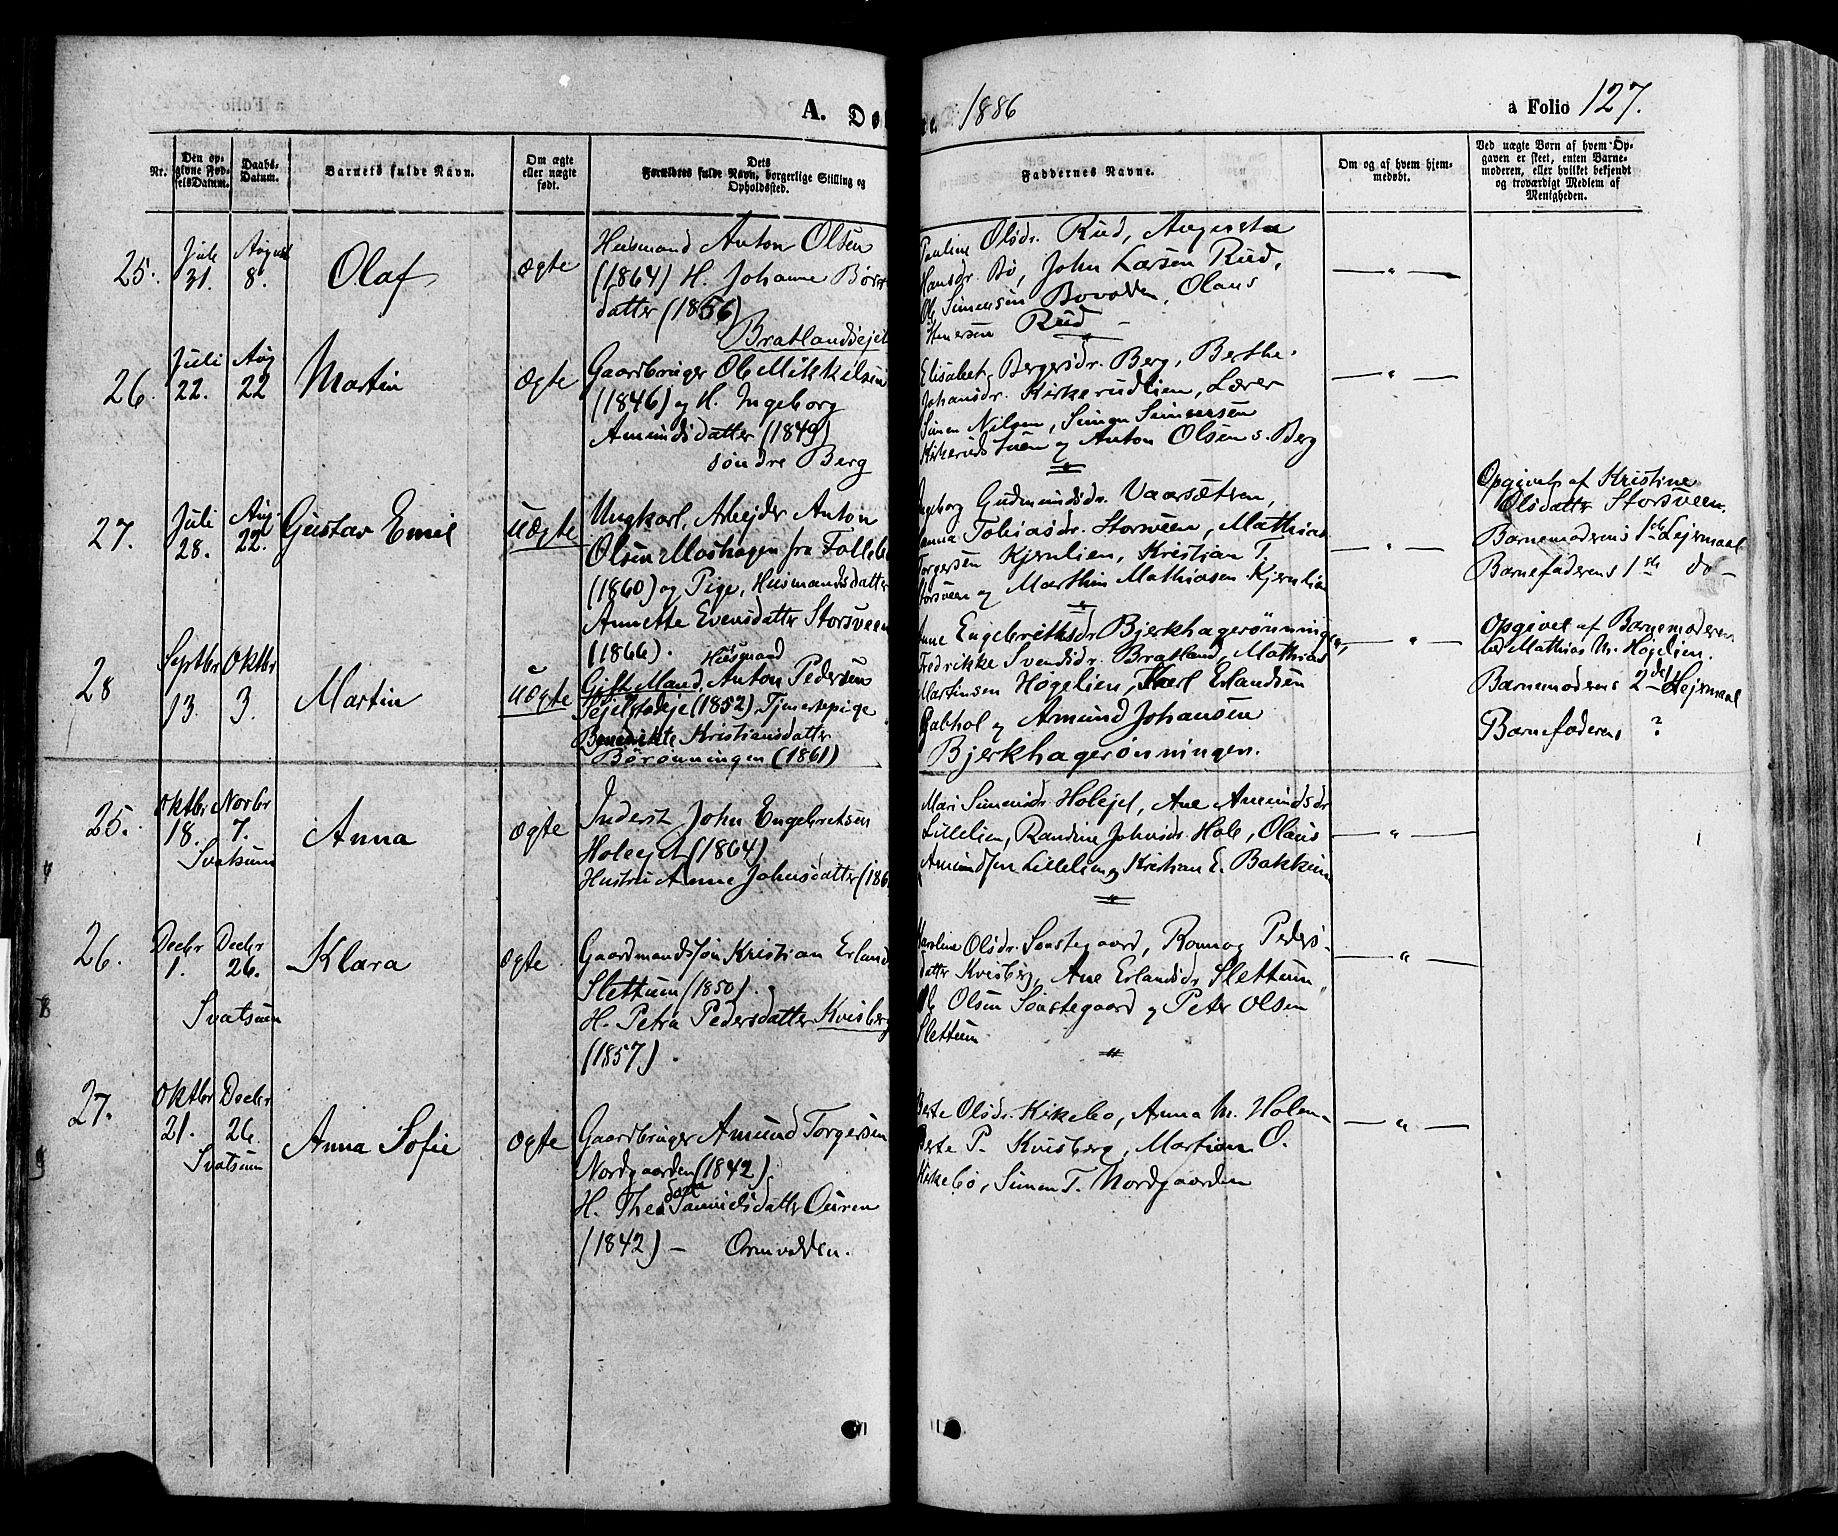 A. Dø
be 1886
a Folio 127.
Nr.
Den op-
givne Fød-
selsDatum.
Daabs-
Datum.
Barnets fulde Navn.
Om ægte
eller uægte
født.
Dets
Forældres fulde Navn, borgerlige Stilling og
Opholdssted.
Faddernes Navne.
Om og af hvem hjem-
medøbt.
Ved uægte Børn af hvem Op-
gaven er skeet, enten Barne-
moderen, eller hvilket bekjendt
og troværdigt Medlem af
Menigheden.
25.
Juli
31.
August
8.
Olaf
ægte
Husmand Anton Olsen
(1864) H. Johanne Børre
datter (1856)
Bratlandsejet
Pauline Olsdr. Rud, Augusta
Hansdr. Bø, John Larsen Rud,
Ole Simensen Bovolden, Olaus
Rud
26.
Juli
22.
Aug
22
Martin
Ægte
Gaardbruger Ole Mikkelsen
(1846) og H. Ingeborg
Amundsdatter (1849)
søndre Berg
Elisabet Bergersdr. Berg, Berthe
Johansdr. Kirkerudlien, Lærer
Simen Nilsen, Simen Simensen
Kirkeruds og Anton Olsen s. Berg
27.
Juli
28.
Aug.
22.
Gustav Emil
Uægte
Ungkarl, Arbejder Anton
Olsen Moshagen fra Follebu
(1860) og Pige, Husmandsdatter
Annette Evensdatter Storsveen
(1866).
Ingeborg Gudmundsdr. Vaarsætren,
Anna Tobiasdr. Storsveen, Mathias
Torgersen Kjernlien, Kristian T.
Storsveen og Marthin Mathiasen Kjernlien
Opgivet af Kristine
Olsdatter Storsveen.
Barnemoderens 1ste Lejermaal
Barnefaderens 1ste do
28
Septbr
13.
Oktbr
3.
Martin
Uægte
Husmand
Gift Mand, Anton Pedersen
(1852) Tjenestepige
Benedikte Kristiansdatter
Børønningen (1861)
Anne Engebrethsdr Bjerkhagerønningen,
Fredrikke Svendsdr. Bratland, Mathias
Martinsen Høgelien, Karl Erlandsen
Gabhol og Amund Johansen
Bjerkhagerønningen.
Opgivet af Barnemoderen
ved Mathias M. Høgelien.
Barnemoderens 2det Lejermaal
Barnefaderens ?
25.
Oktbr
18.
Novbr
7.
Svatsum
Anna
ægte
Inderst John Engebretsen
Holeejet (1864)
Hustru Anne Johnsdatter (186
Mari Simensdr. Holejet, Ane Amundsdr
Lillelien, Randine Johnsdr. Hole, Olaus
Amundsen Lillelien og Kristian E. Bakken
26.
Decbr
1.
Decbr
26.
Svatsum
Klara
Ægte
Gaardmandssøn Kristian Erland
Slettum (1850) og
H. Petra Pedersdatter Kvisberg
(1857).
Karoline Olsdr. Sønstegaard, Ronnog Peders-
datter Kvisberg, Ane Erlandsdr Slettum
Ole Olsen Sønstegaard og Peter Olsen
Slettum
27.
Oktbr
21.
Decbr
26
Svatsum
Anna Sofie
ægte
Gaardbruger Amund Torgersen
Nordgaarden (1842)
H. Theodora Samuelsdatter Ouren
(1842) — Ormvolden.
Berte Olsdr. Kirkebø, Anna M. Holen
Berte P. Kvisberg, Martian O.
Kirkebø, Simen T. Nordgaarden